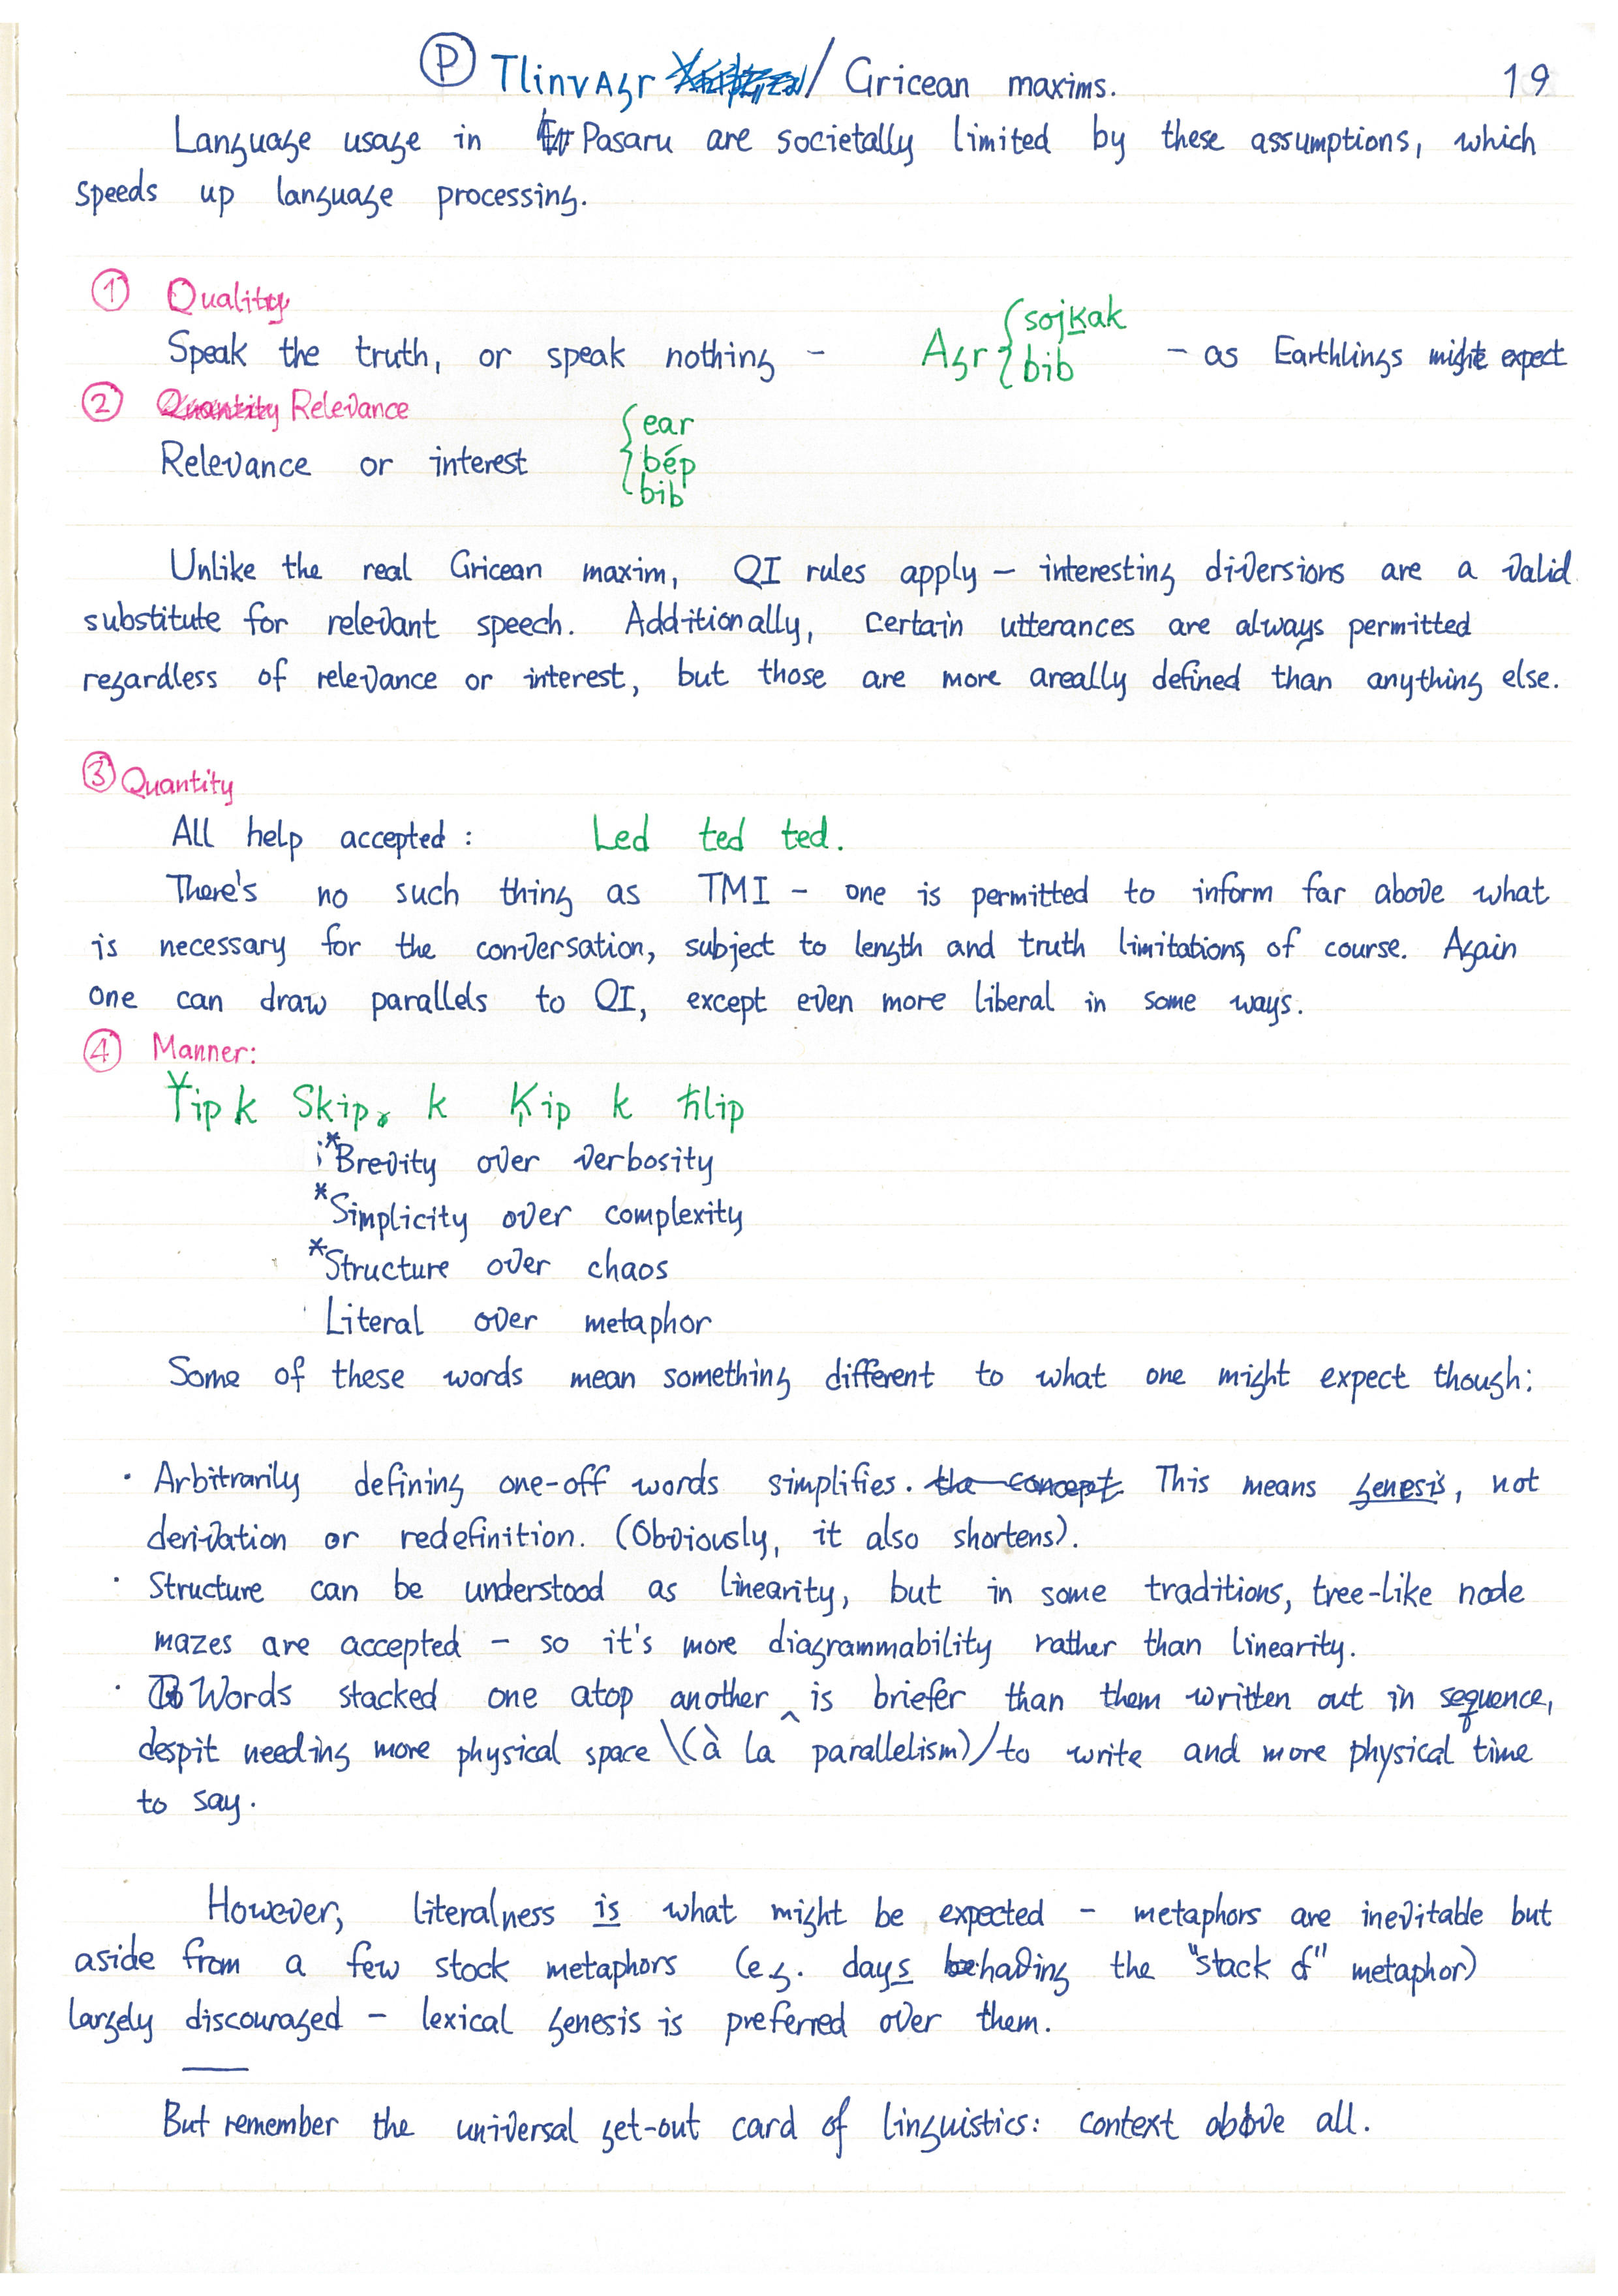 Ⓟ TlinvAgr / Gricean maxims. 19
Language usage in Pasaru are societally limited by these assumptions, which
speeds up language processing.
① Quality
Speak the truth, or speak nothing - Agr { sojkak bib - as Earthlings might expect
② Quantity Relevance
Relevance or interest { ear bép bib
Unlike the real Gricean maxim, QI rules apply - interesting diversions are a valid
substitute for relevant speech. Additionally, certain utterances are always permitted
regardless of relevance or interest, but those are more areally defined than anything else.
③ Quantity
All help accepted: Led ted ted.
There's no such thing as TMI - one is permitted to inform far above what
is necessary for the conversation, subject to length and truth limitations of course. Again
one can draw parallels to QI, except even more liberal in some ways.
④ Manner:
k Skip k k
*Brevity over verbosity
*Simplicity over complexity
*Structure over chaos
Literal over metaphor
Some of these words mean something different to what one might expect though:
· Arbitrarily defining one-off words simplifies. the concept This means genesis, not
derivation or redefinition. (Obviously, it also shortens).
· Structure can be understood as linearity, but in some traditions, tree-like node
mazes are accepted - so it's more diagrammability rather than linearity.
· Words stacked one atop another ^ is briefer than them written out in sequence,
despit needing more physical space \(à la parallelism)/ to write and more physical time
to say.
However, literalness is what might be expected - metaphors are inevitable but
aside from a few stock metaphors (e.g. days having the "stack of" metaphor)
largely discouraged - lexical genesis is preferred over them.
But remember the universal get-out card of linguistics: context above all.